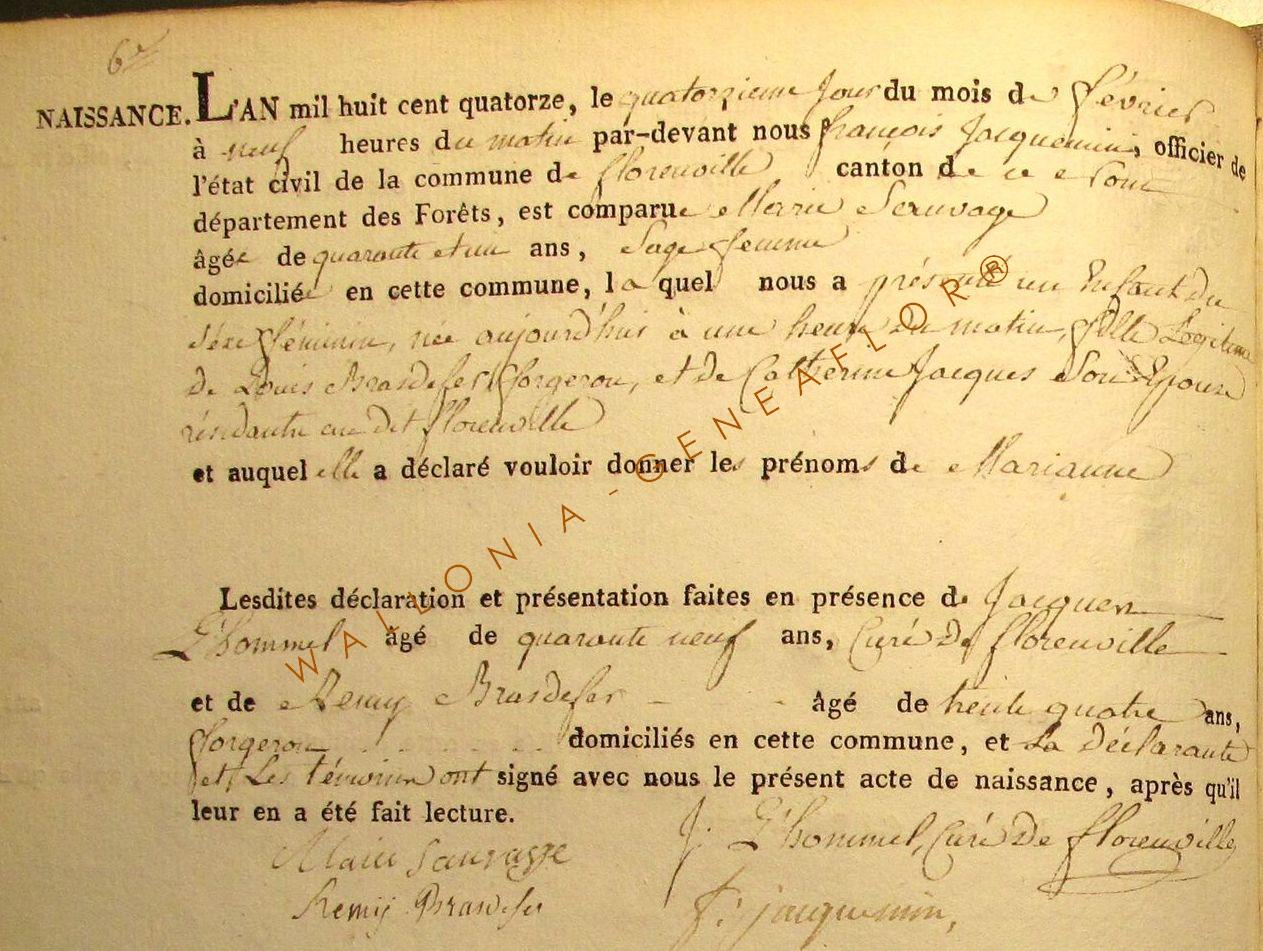 6e
NAISSANCE. L'AN mil huit cent quatorze, le quatorzieme jour du mois de février
à neuf heures du matin par-devant nous françois Jacquemin, officier de
l'état civil de la commune de florenville canton de
département des Forêts, est comparue Marie Sauvage
âgée de quarante et un ans, Sage femme
domiciliée en cette commune, laquel nous a présenté un Enfant du
séxe féminin, née aujourd'hui à une heure du matin, fille Légitime
de Louis Brasdefer, forgeron, et de Catherine Jacques Son Epouse
résidante au dit florenville
et auquel elle a déclaré vouloir donner les prénoms de Marianne
Lesdites déclaration et présentation faites en présence de Jacques
L'hommel âgé de quarante neuf ans, Curé De florenville
et de Remy Brasdefer âgé de trente quatre ans,
forgeron domiciliés en cette commune, et La Déclarante
et Les témoins ont signé avec nous le présent acte de naissance, après qu'il
leur en a été fait lecture.
J. L'hommel, Curé De florenville
Marie Sauvagge
Remij Brasdefer
f: jacquemin,
WALLONIA-GENEAFLOR®